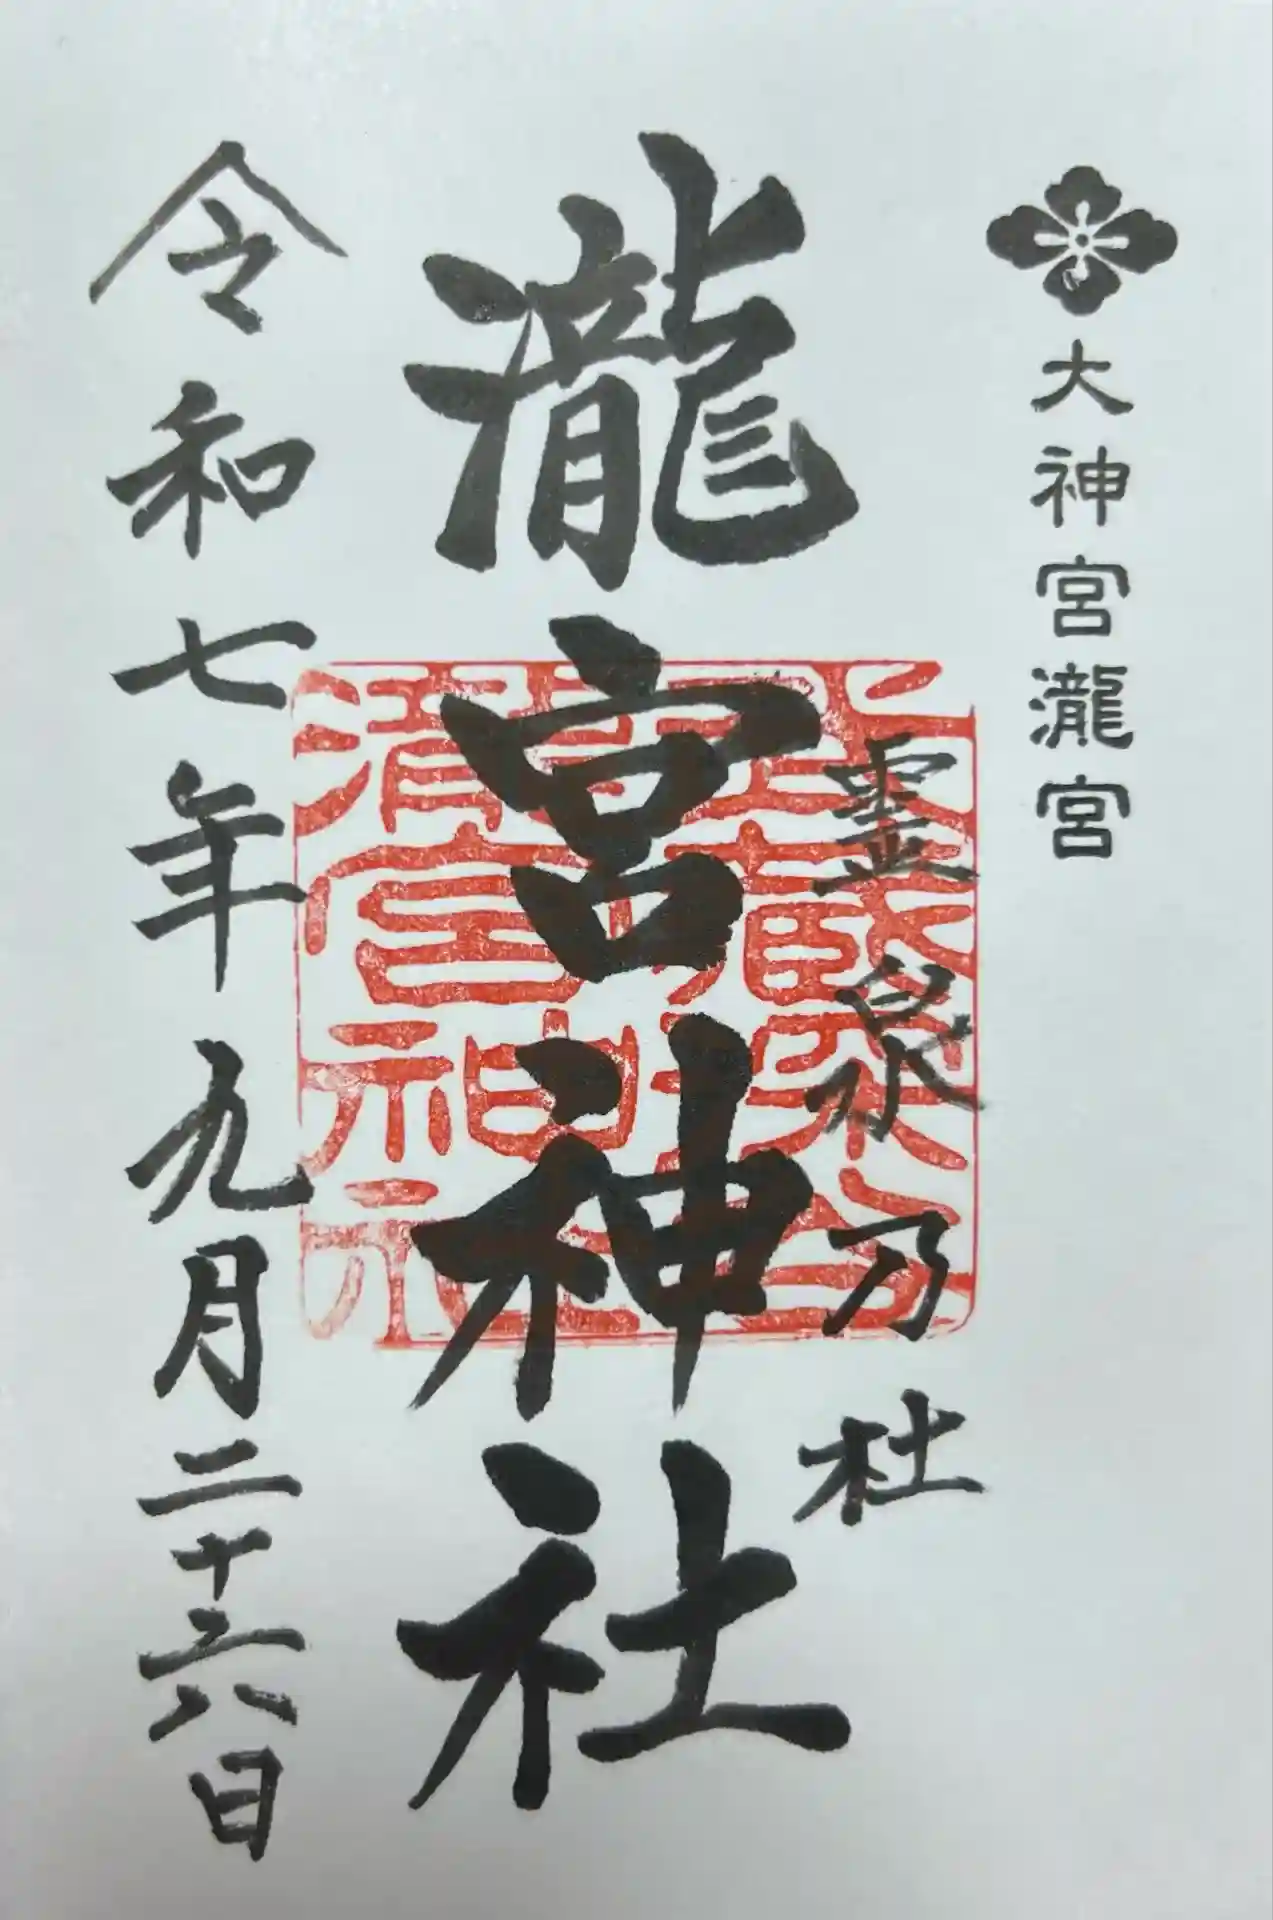 大神宮瀧宮
霊泉乃杜
瀧宮神社
令和七年九月二十六日